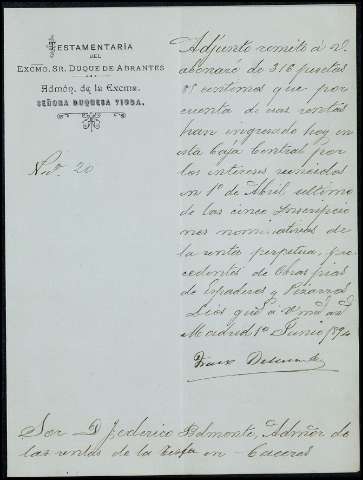 TESTAMENTARÍA
DEL
EXCMO. SR. DUQUE DE ABRANTES
Admón. de la Excma.
SEÑORA DUQUESA VIUDA.
Nº 20
Adjunto remito á V.
abonaré de 316 pesetas
céntimos que por
cuenta de esas rentas
han ingresado hoy en
esta Caja Central por
los intereses vencidos
en 1º de Abril ultimo
de las cinco Inscripcio
nes nominativas de
la renta perpetua, pro
cedentes de Obras pias
de Espaderos y Pizarros
Dios gue á V ms as
Madrid 1º Junio 1894
Sor D Federico Belmonte, Admor de
las rentas de la Testa en Caceres